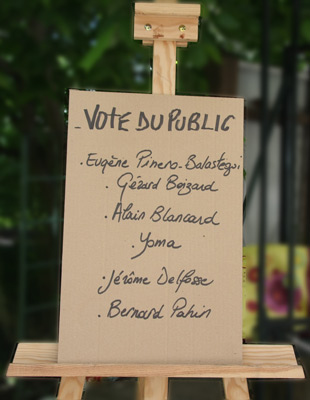 -VOTE DU PUBLIC
. Eugène Pinero-Balastegui
. Gérard Boizard
. Alain Blancard
. Yoma
. Jérôme Delfosse
. Bernard